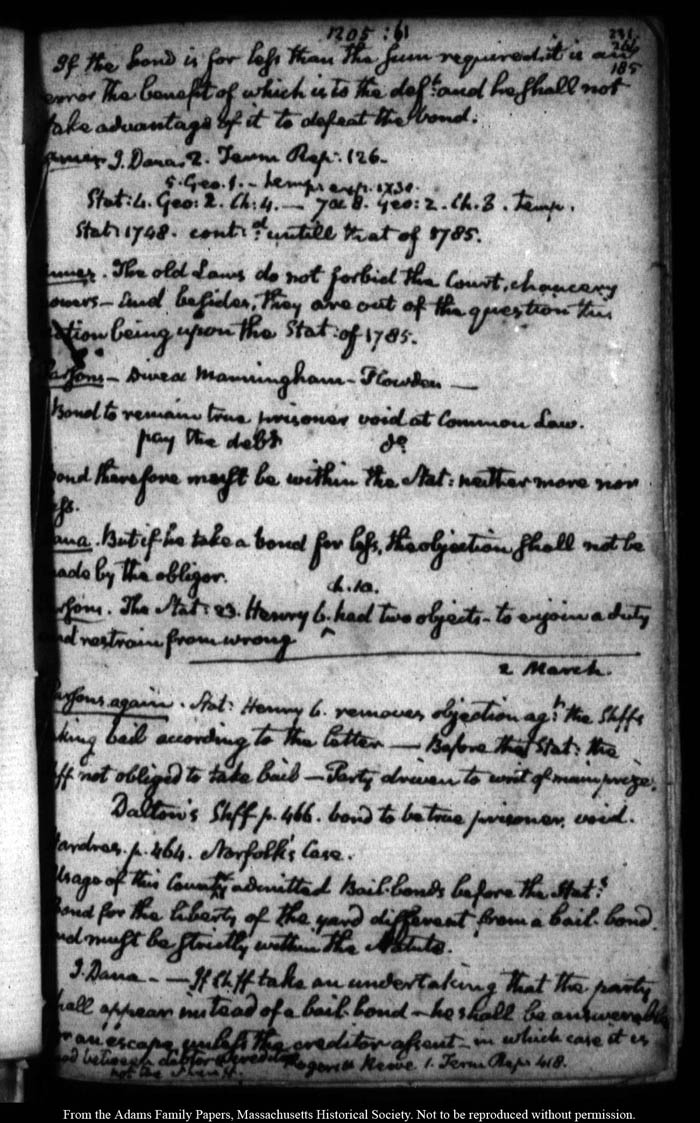 1205 :61
231.
185
If the bond is for less than the sum required, it is an
error the benefit of which is to the deft. and he shall not
take advantage of it to defeat the bond.
J. Dana. 2. Term Rep. 126.
5. Geo. 1. - temp: exp. 1730.
Stat: 4. Geo: 2. Ch: 4. — 7 & 8. Geo: 2. Ch. 3. Temp.
Stat: 1748. contd. untill that of 1785.
The old Laws do not forbid the Court, chancery
owers — And besides, they are out of the question this
ction being upon the Stat: of 1785.
arsons — Dive & Manningham - Plowden —
Bond to remain true prisoner void at Common Law.
pay the debt do
ond therefore must be within the Stat: neither more nor
ess.
ana. But if he take a bond for less, the objection shall not be
ade by the obligor.
ch. 10.
arsons. The Stat: 23. Henry 6. had two objects - to enjoin a duty
nd restrain from wrong
2 March.
arsons again. Stat: Henry 6. removes objection agt. the Shffs
king bail according to the letter — Before that Stat: the
ff not obliged to take bail — Party driven to writ of mainprize.
Dalton's Shff p. 466. bond to be true prisoner, void.
Hardres. p. 464. Norfolk's Case.
Usage of this County admitted Bail-bonds before the Stat:
Bond for the liberty of the yard different from a bail-bond.
nd must be strictly within the Statute.
J. Dana — — If Shff take an undertaking that the party
hall appear instead of a bail-bond — he shall be answerable
or an escape, unless the creditor assent — in which case it is
between debtor & creditor Rogers vs Reeve 1. Term Rep. 418.
not the Sheriff.
From the Adams Family Papers, Massachusetts Historical Society. Not to be reproduced without permission.